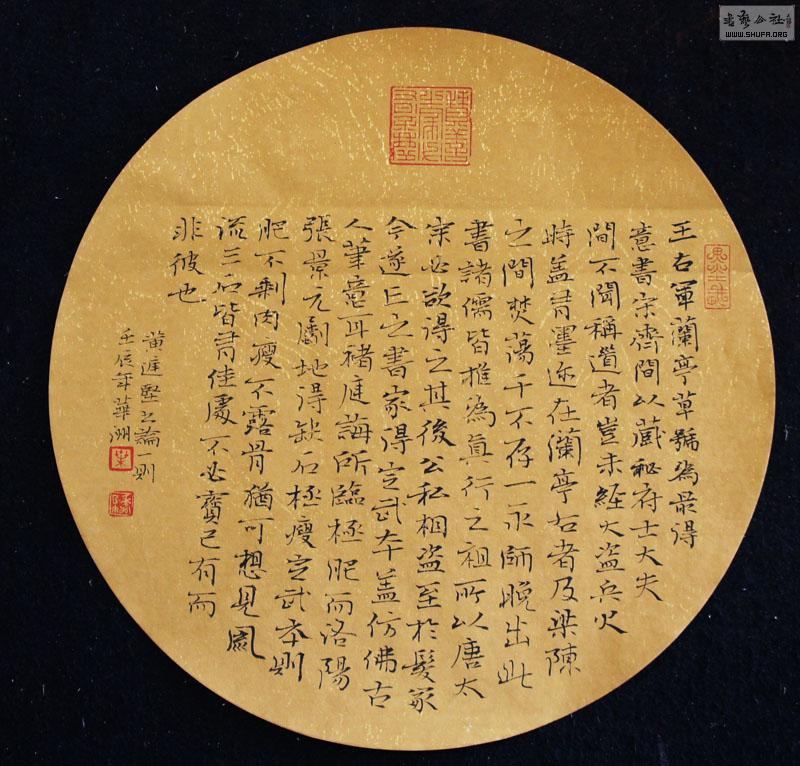 王右軍蘭亭草號為最得
意書宋齊間以藏秘府士大夫
間不聞稱道者豈未經大盜兵火
時蓋有墨迹在蘭亭右者及梁陳
之間焚蕩千不存一永師晚出此
書諸儒皆推為真行之祖所以唐太
宗必欲得之其後公私相盜至於發冢
今遂亡之書家得定武本蓋仿佛古
人筆意耳褚庭誨所臨極肥而洛陽
張景元劚地得缺石極瘦定武本則
肥不剩肉瘦不露骨猶可想見風
流三石皆有佳處不必寶已有而
非彼也
黃庭堅書論一則
壬辰年華洲
書藝公社
WWW.SHUFA.ORG